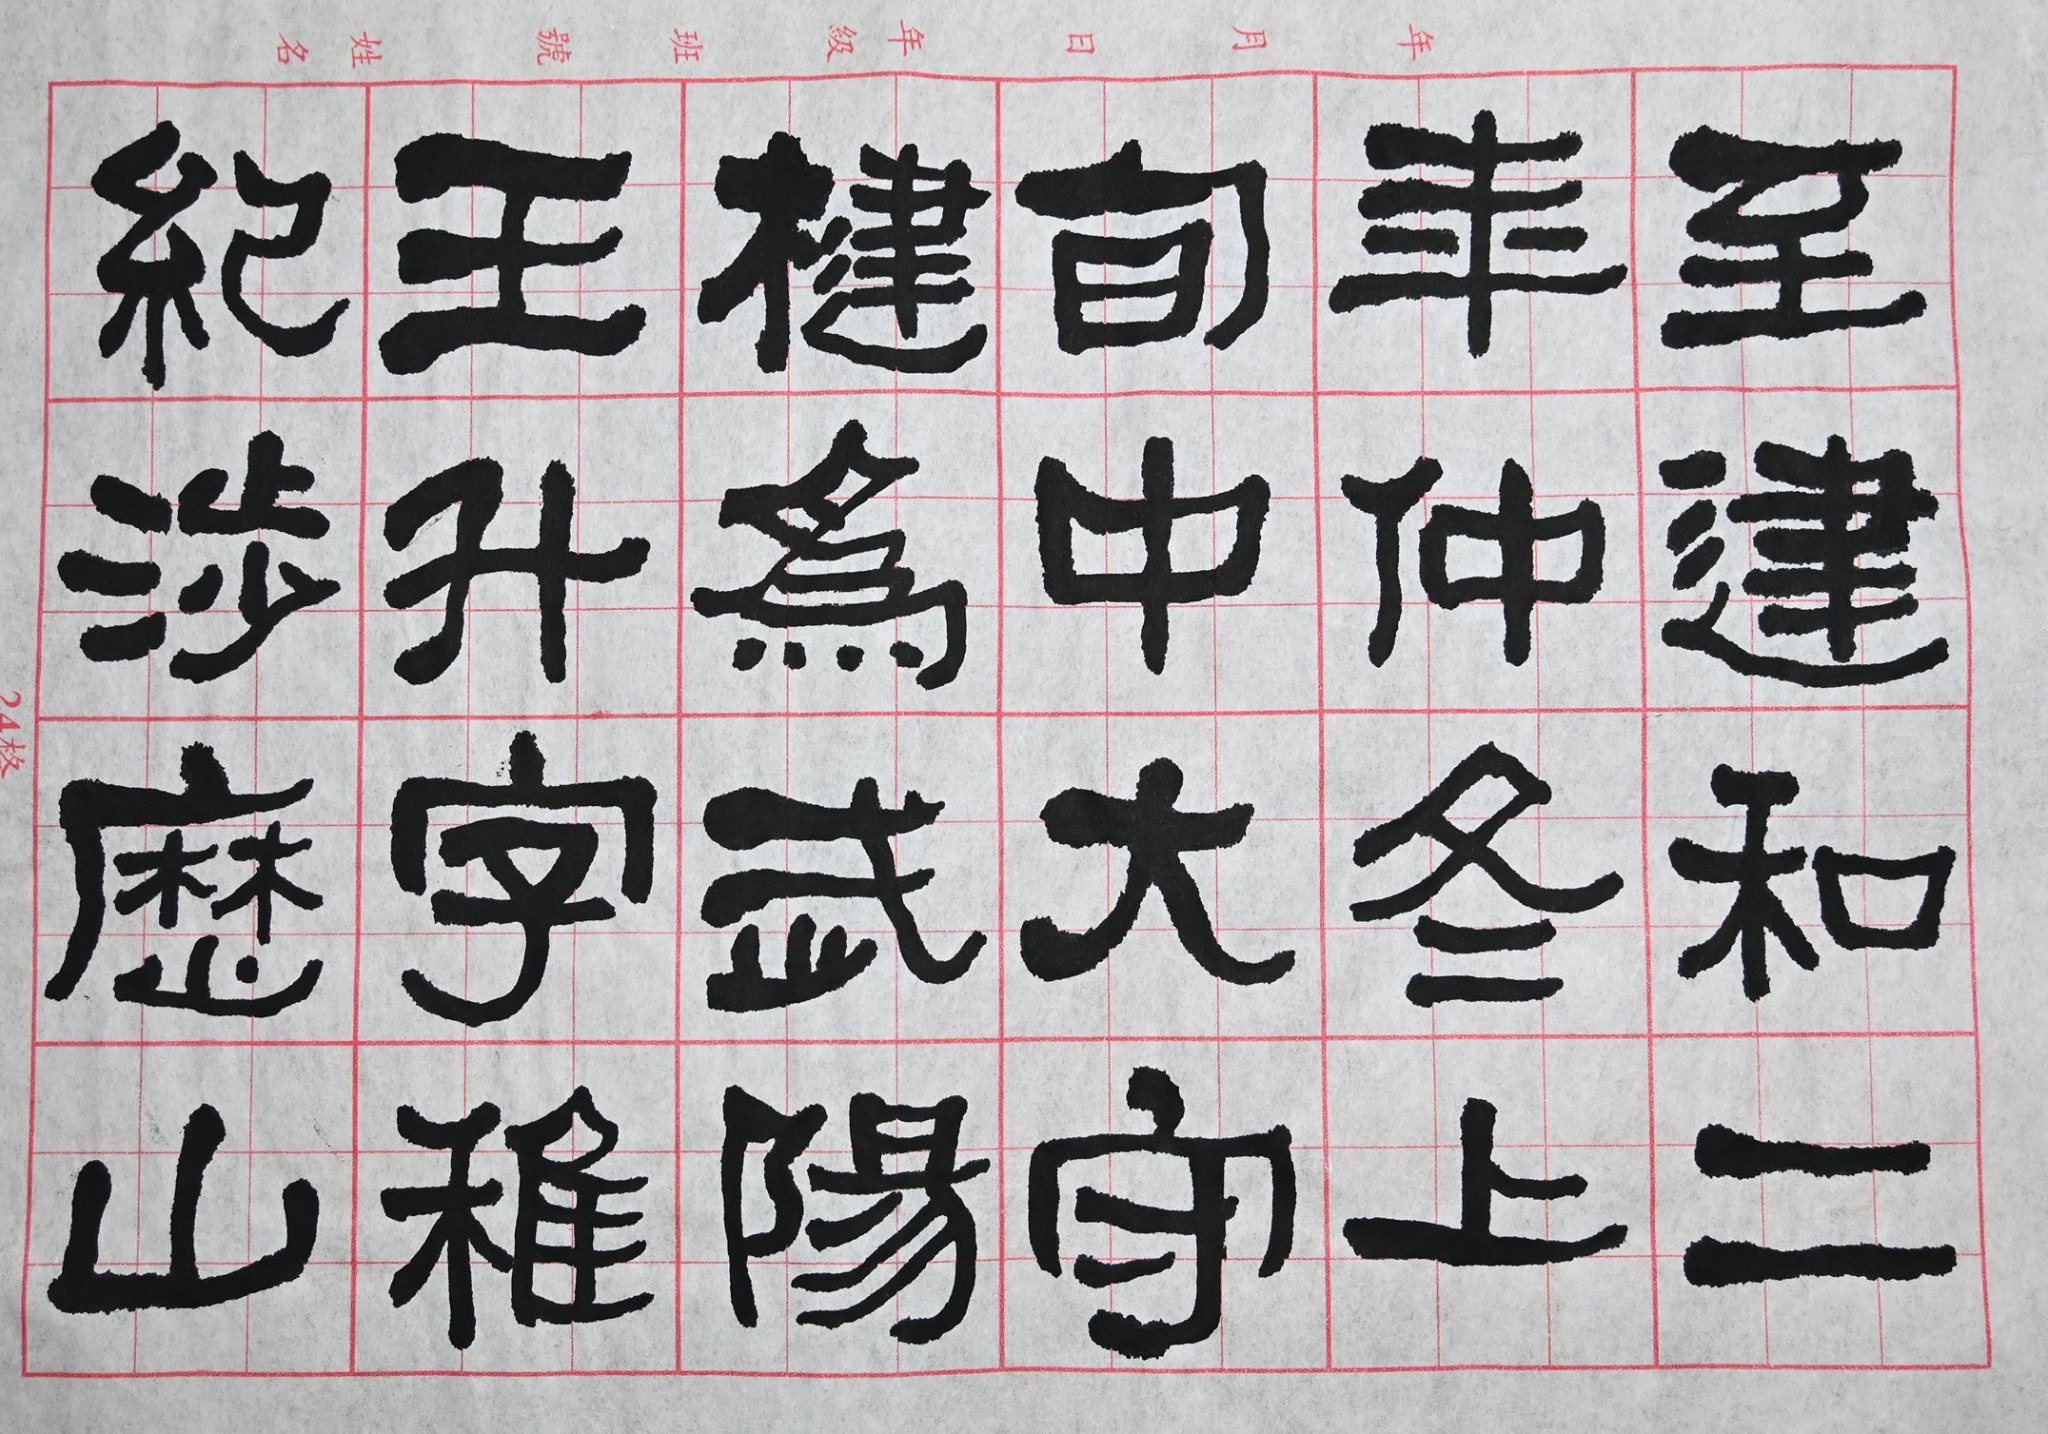 年 月 日 年級 班 號 姓名
至建和二
年仲冬上
旬中大守
楗爲武陽
王升字稚
紀涉歷山
24格